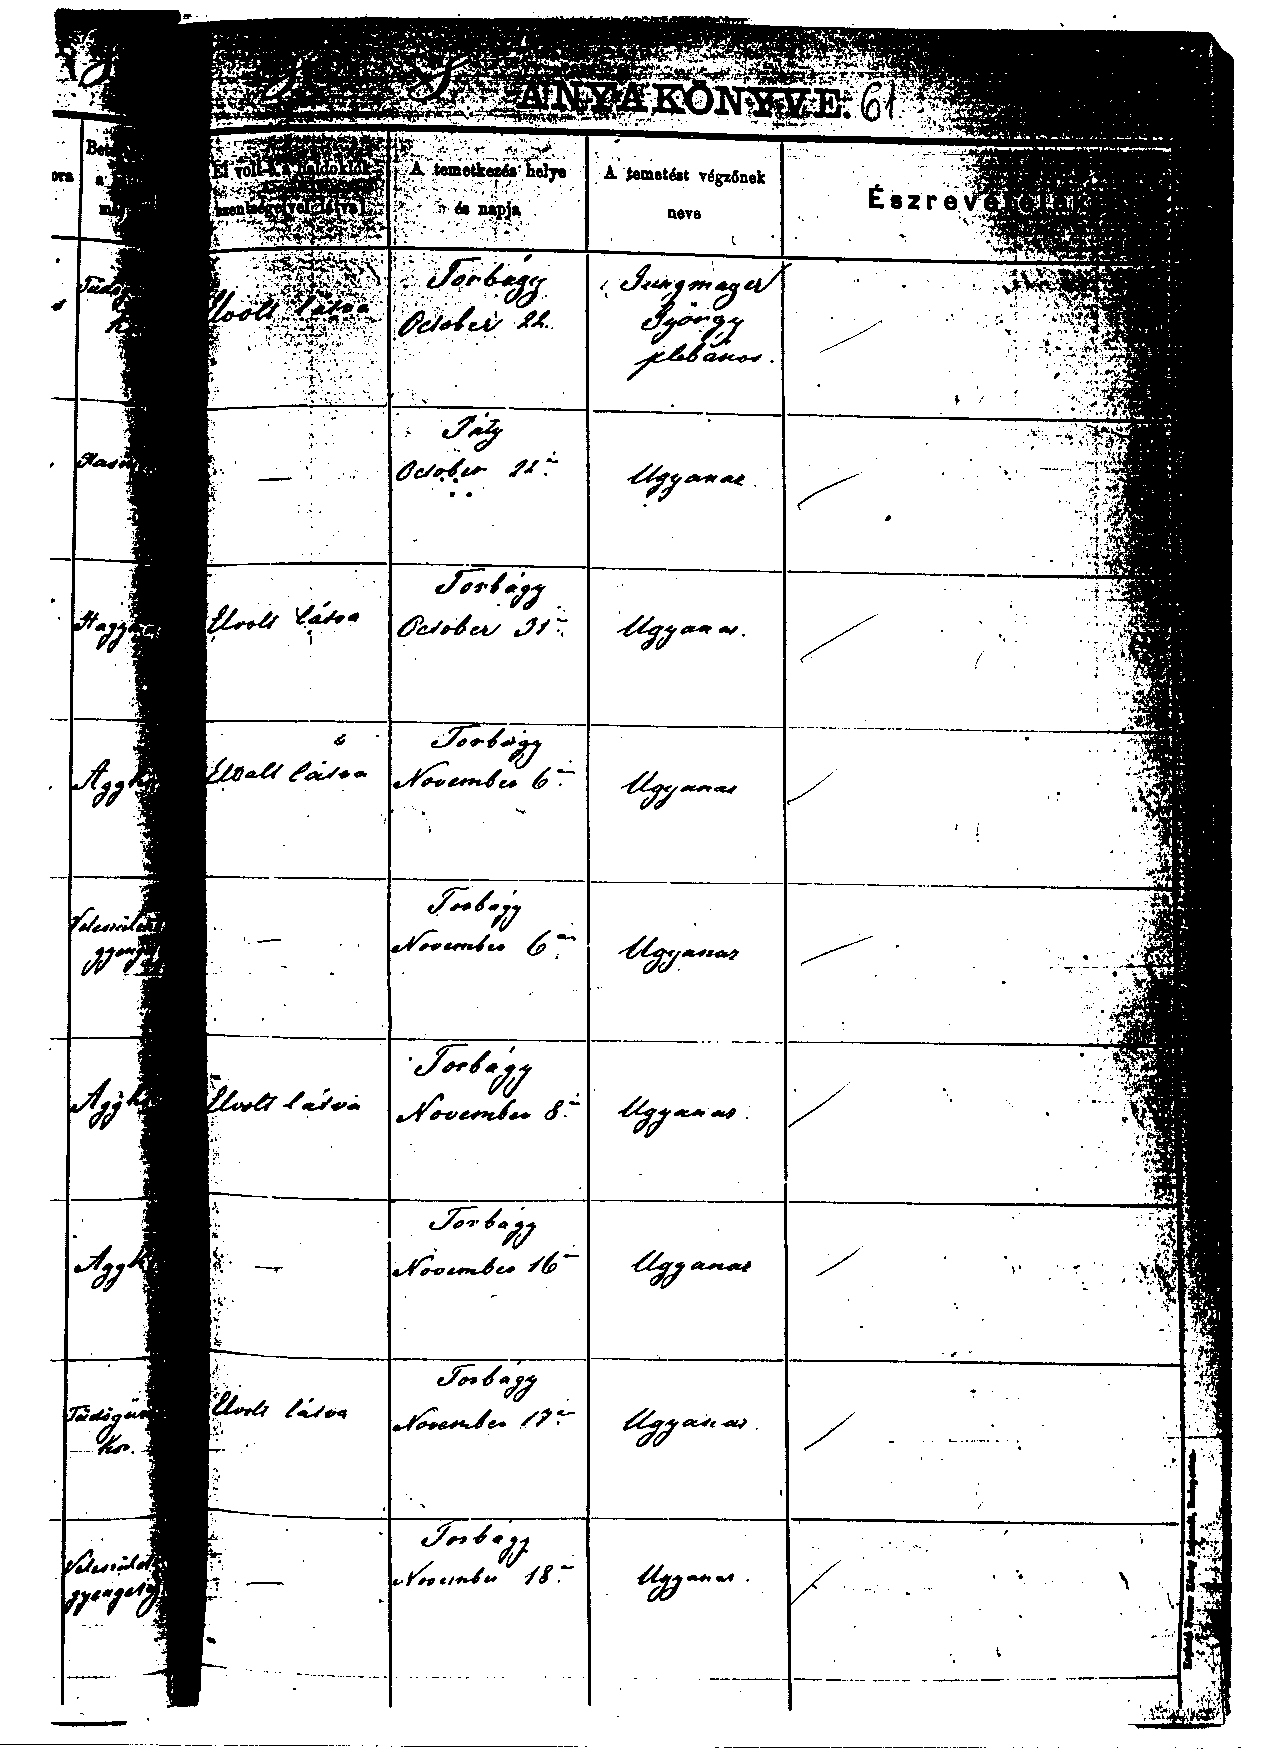 ANYAKÖNYVE. 61
A temetkezés helye
és napja
A temetést végzőnek
neve
Észrevételek
Elvolt látva
Torbágy
October 22.
Jungmayer
György
plebános.
—
Páty
October 22.
Ugyanaz
Elvolt látva
Torbágy
October 31.
Ugyanaz.
Aggk
Elvolt látva
Torbágy
November 6.
Ugyanaz
Veleszület
gyenge
—
Torbágy
November 6.
Ugyanaz
Aggk
Elvolt látva
Torbágy
November 8.
Ugyanaz.
Aggk
—
Torbágy
November 16
Ugyanaz
Tüdőgüm
kór.
Elvolt látva
Torbágy
November 17.
Ugyanaz.
Veleszületet
gyengeség
—
Torbágy
November 18.
Ugyanaz.